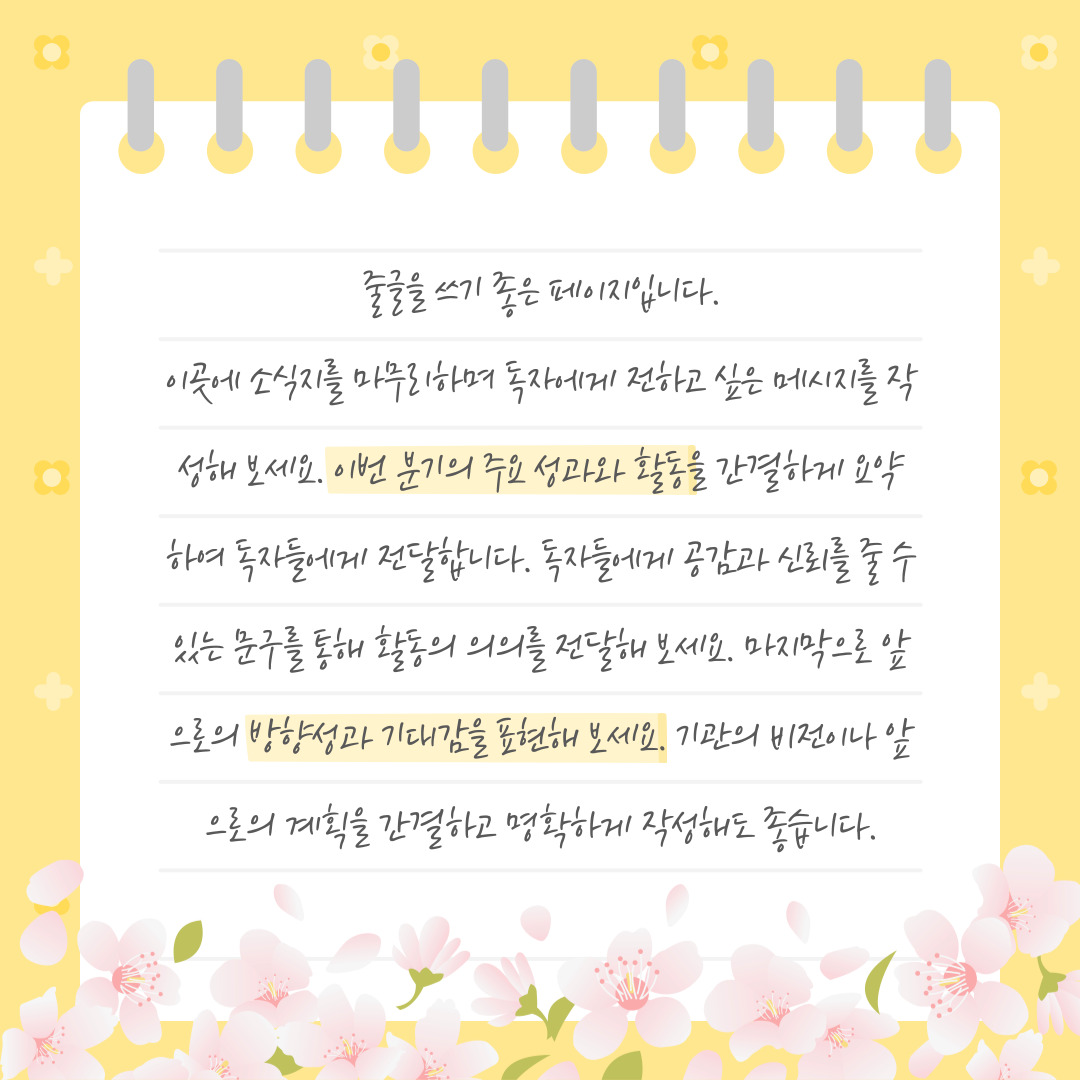 줄글을 쓰기 좋은 페이지입니다.
이곳에 소식지를 마무리하며 독자에게 전하고 싶은 메시지를 작
성해 보세요. 이번 분기의 주요 성과와 활동을 간결하게 요약
하여 독자들에게 전달합니다. 독자들에게 공감과 신뢰를 줄 수
있는 문구를 통해 활동의 의의를 전달해 보세요. 마지막으로 앞
으로의 방향성과 기대감을 표현해 보세요. 기관의 비전이나 앞
으로의 계획을 간결하고 명확하게 작성해도 좋습니다.